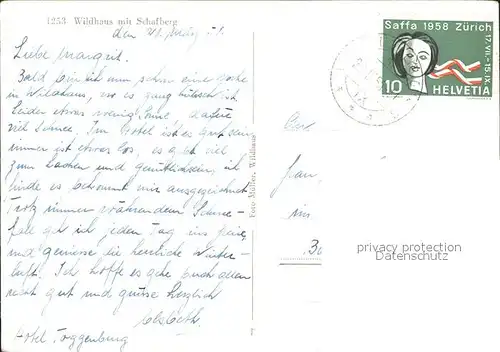 1253 Wildhaus mit Schafberg
den 21. März 58.
Liebe Margrit.
Bald bin ich nun schon eine Woche
in Wildhaus, wo es ganz hübsch ist.
Leider etwas wenig Sonne, dafür
viel Schnee. Im Hotel ist es gut und
immer ist etwas los, es gibt viel
zum Lachen und gemütlich sein, ich
finde es bekommt mir ausgezeichnet.
Trotz immer währendem Schnee-
fall geh ich jeden Tag ins Freie
und geniesse die herrliche Winter-
luft. Ich hoffe es gehe Euch allen
recht gut und grüsse herzlich
Elsbeth.
Hotel Toggenburg
Foto Müller, Wildhaus
Saffa 1958 Zürich
17.VII.-15.IX.
10 HELVETIA
Frau
im
privacy protection
Datenschutz